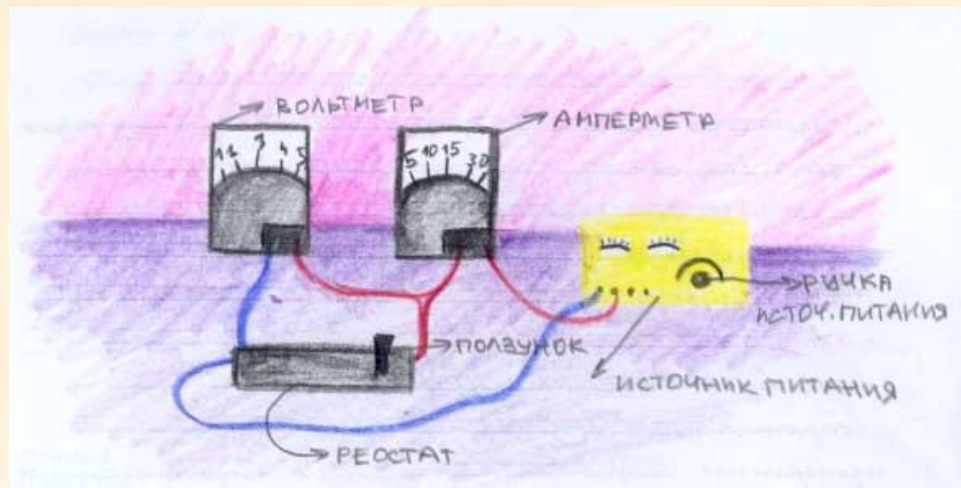 ВОЛЬТМЕТР
АМПЕРМЕТР
5 10 15 30
РУЧКА
ИСТОЧ. ПИТАНИЯ
ПОЛЗУНОК
ИСТОЧНИК ПИТАНИЯ
РЕОСТАТ